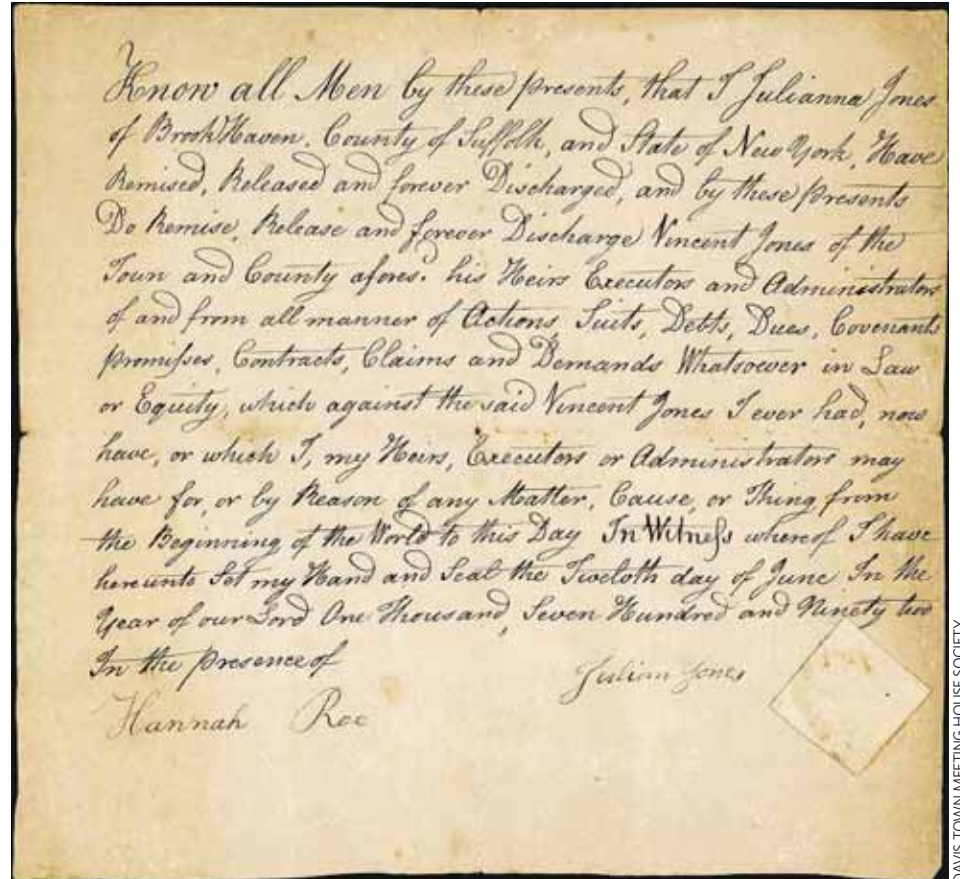 Know all Men by these presents, that I Julianna Jones
of BrookHaven, County of Suffolk, and State of New York, Have
Remised, Released and forever Discharged, and by these presents
Do Remise, Release and forever Discharge Vincent Jones of the
Town and County afores.d his Heirs Executors and Administrators
of and from all manner of Actions, Suits, Debts, Dues, Covenants
promiſses, Contracts, Claims and Demands Whatsoever in Law
or Equity, which against the said Vincent Jones I ever had, now
have, or which I, my Heirs, Executors or Administrators may
have for, or by Reason of any Matter, Cause, or Thing from
the Beginning of the World to this Day In Witneſs whereof I have
hereunto Set my Hand and Seal the Twelvth day of June In the
Year of our Lord One Thousand, Seven Hundred and Ninety two
In the presence of
Julian Jones
Hannah Roe
DAVIS TOWN MEETING HOUSE SOCIETY